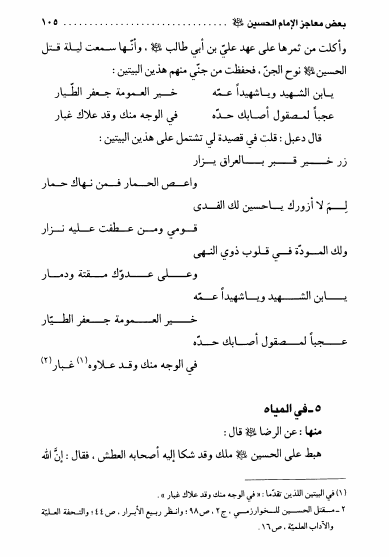 بعض معاجز الإمام الحسين ﷺ ........................ ١٠٥
وأكلت من ثمرها على عهد عليّ بن أبي طالب ﷺ ، وأنّها سمعت ليلة قتل
الحسين ﷺ نوح الجنّ ، فحفظت من جنّي منهم هذين البيتين :
يا بن الشهيد ويا شهيداً عمّه خير العمومة جعفر الطيّار
عجباً لمصقول أصابك حدّه في الوجه منك وقد علاك غبار
قال دعبل : قلت في قصيدة لي تشتمل على هذين البيتين :
زر خير قبر بالعراق يزار
واعص الحمار فمن نهاك حمار
لِمَ لا أزورك يا حسين لك الفدى
قومي ومن عطفت عليه نزار
ولك المودّة في قلوب ذوي النهى
وعلى عدوّك مقتة ودمار
يا بن الشهيد ويا شهيداً عمّه
خير العمومة جعفر الطيّار
عجباً لمصقول أصابك حدّه
في الوجه منك وقد علاوه (١) غبار (٢)
٥ ـ في المياه
منها : عن الرضا ﷺ قال :
هبط على الحسين ﷺ ملك وقد شكا إليه أصحابه العطش ، فقال : إنّ الله
(١) في البيتين اللذين تقدّما : « في الوجه منك وقد علاك غبار » .
٢ ـ مقتل الحسين للخوارزمي ، ج٢ ، ص٩٨ ؛ وانظر ربيع الأبرار ، ص٤٤ ؛ والتحفة العليّة
والآداب العلميّة ، ص١٦ .